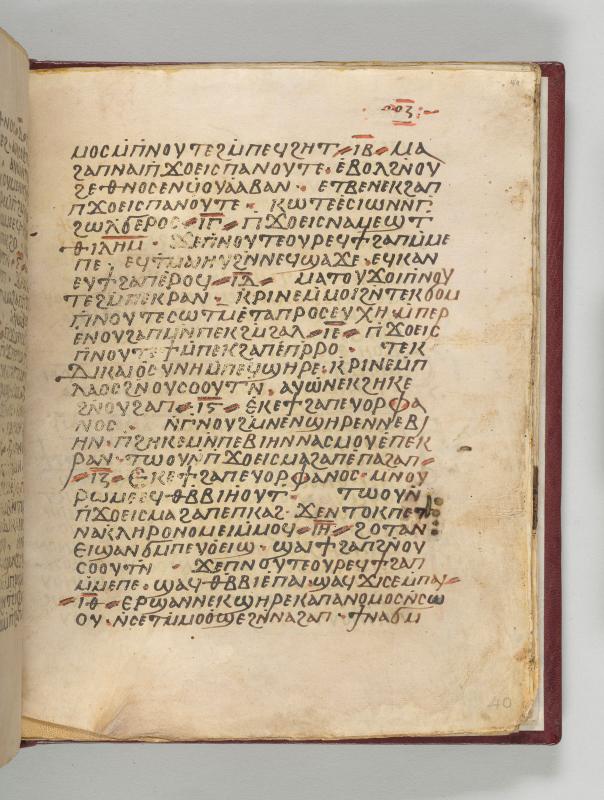 ⲣⲟⲍ
ⲙⲟⲥⲙ̄ⲡⲛⲟⲩⲧⲉϩⲙ̄ⲡⲉϥϩⲏⲧ· ⲓⲃ ⲙⲁ
ϩⲁⲡⲛⲁⲓ̈ⲡϫⲟⲉⲓⲥⲡⲁⲛⲟⲩⲧⲉ· ⲉⲃⲟⲗϩⲛⲟⲩ
ϩⲉⲑⲛⲟⲥⲉⲛϥ̄ⲟⲩⲁⲁⲃⲁⲛ· ⲉⲧⲃⲉⲛⲉⲕϩⲁⲡ
ⲡϫⲟⲉⲓⲥⲡⲁⲛⲟⲩⲧⲉ· ⲕⲱⲧⲉⲉⲥⲓⲱⲛⲛⲅ̄
ϩⲱⲗϭⲉⲣⲟⲥ· ⲓⲅ ⲡ̄ϫⲟⲉⲓⲥⲛⲁⲙⲉϣⲧ
ⲑⲓⲗⲏⲙ· ϫⲉⲡⲛⲟⲩⲧⲉⲟⲩⲣⲉϥϯϩⲁⲡⲙ̄ⲙⲉ
ⲡⲉ· ⲉϥϯⲙⲁⲓⲏⲩϩⲛⲛⲉϥϣⲁϫⲉ· ⲉϥⲕⲁⲛ
ⲉⲩϯϩⲁⲡⲉⲣⲟϥ· ⲓⲇ ⲙⲁⲧⲟⲩϫⲟⲓ̈ⲡⲛⲟⲩ
ⲧⲉϩⲙ̄ⲡⲉⲕⲣⲁⲛ· ⲕⲣⲓⲛⲉⲙ̄ⲙⲟⲓ̈ϩⲛⲧⲉⲕϭⲟⲙ
ⲡ̄ⲛⲟⲩⲧⲉⲥⲱⲧⲙ̄ⲉⲧⲁⲡⲣⲟⲥⲉⲩⲭⲏ· ⲙ̄ⲡⲉⲣ
ⲉⲛⲟⲩϩⲁⲡⲙⲛ̄ⲡⲉⲕϩⲙ̄ϩⲁⲗ· ⲓⲉ ⲡ̄ϫⲟⲉⲓⲥ
ⲡⲛⲟⲩⲧⲉϯⲙ̄ⲡⲉⲕϩⲁⲡⲉⲡⲣ̄ⲣⲟ· ⲧⲉⲕ
ⲇⲓⲕⲁⲓⲟⲥⲩⲛⲏⲙ̄ⲡⲉϥϣⲏⲣⲉ· ⲕⲣⲓⲛⲉⲙ̄ⲡ
ⲗⲁⲟⲥϩⲛⲟⲩⲥⲟⲟⲩⲧⲛ̄· ⲁⲩⲱⲛⲉⲕϩⲏⲕⲉ
ϩⲛⲟⲩϩⲁⲡ· ⲓⲋ ⲉⲕⲉϯϩⲁⲡⲉⲩⲟⲣⲫⲁ
ⲛⲟⲥ· ⲛ̄ⲅⲛⲟⲩϩⲙ̄ⲉⲛϣⲏⲣⲉⲛⲛⲉⲃⲓ
ⲏⲛ· ⲡϩⲏⲕⲉⲙⲛ̄ⲡⲉⲃⲓⲏⲛⲛⲁⲥⲙⲟⲩⲉⲡⲉⲕ
ⲣⲁⲛ· ⲧⲱⲟⲩⲛ̄ⲡϫⲟⲉⲓⲥⲙⲁϩⲁⲡⲉⲡⲁϩⲁⲡ
ⲓⲍ ⲉⲕⲉϯϩⲁⲡⲉⲩⲟⲣⲫⲁⲛⲟⲥ· ⲙⲛⲟⲩ
ⲣⲱⲙⲉⲉϥⲑⲃⲃⲓⲏⲟⲩⲧ· ⲧⲱⲟⲩⲛ̄
ⲡ̄ϫⲟⲉⲓⲥⲙⲁϩⲁⲡⲉⲡⲕⲁϩ· ϫⲉⲛⲧⲟⲕⲡⲉⲧ
ⲛⲁⲕⲗⲏⲣⲟⲛⲟⲙⲉⲓⲙ̄ⲙⲟϥ· ⲓⲏ ϩⲟⲧⲁⲛ
ⲉⲓϣⲁⲛϭⲙ̄ⲡⲉⲩⲟⲉⲓϣ· ϣⲁⲓ̈ϯϩⲁⲡϩⲛⲟⲩ
ⲥⲟⲟⲩⲧⲛ̄ ϫⲉⲡⲛⲟⲩⲧⲉⲟⲩⲣⲉϥϯϩⲁⲡ
ⲙ̄ⲙⲉⲡⲉ· ϣⲁϥⲑⲃⲃⲓⲉⲡⲁⲓ̈· ϣⲁϥϫⲓⲥⲉⲙ̄ⲡⲁⲓ̈
ⲓⲑ ⲉⲣϣⲁⲛⲛⲉⲕϣⲏⲣⲉⲕⲁⲡⲁⲛⲟⲙⲟⲥⲛ̄ⲥⲱ
ⲟⲩ· ⲛ̄ⲥⲉⲧⲙ̄ⲙⲟⲟϣⲉϩⲛⲛⲁϩⲁⲡ· ϯⲛⲁϭⲙ
40